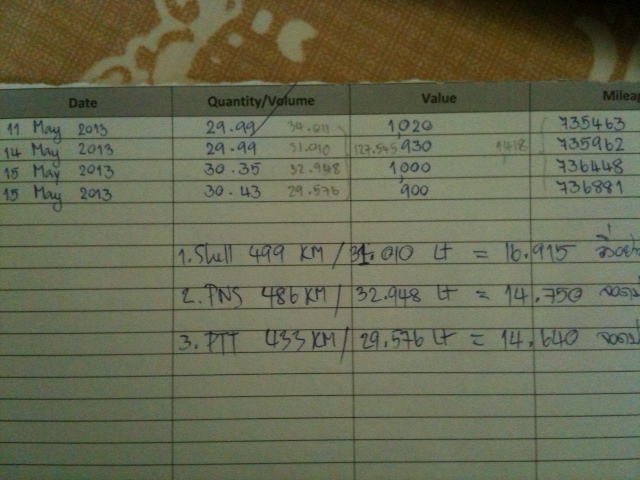 Date Quantity/Volume Value Mileag
11 May 2013 29.99 34.011 1,020 735463
14 May 2013 29.99 31.010 127.545 930 1418 735962
15 May 2013 30.35 32.948 1,000 736448
15 May 2013 30.43 29.576 900 736881
1. Shell 499 KM / 31.010 Lt = 16.915
2. PNS 486 KM / 32.948 Lt = 14.750
3. PTT 433 KM / 29.576 Lt = 14.640